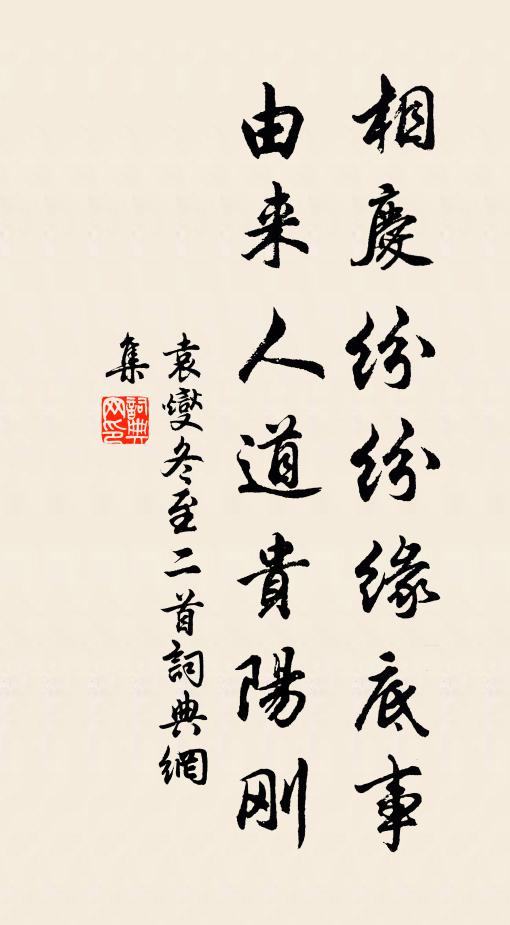 相慶紛紛緣底事
由来人道貴陽刚
袁燮冬至二首詞典網
集
詞典網印